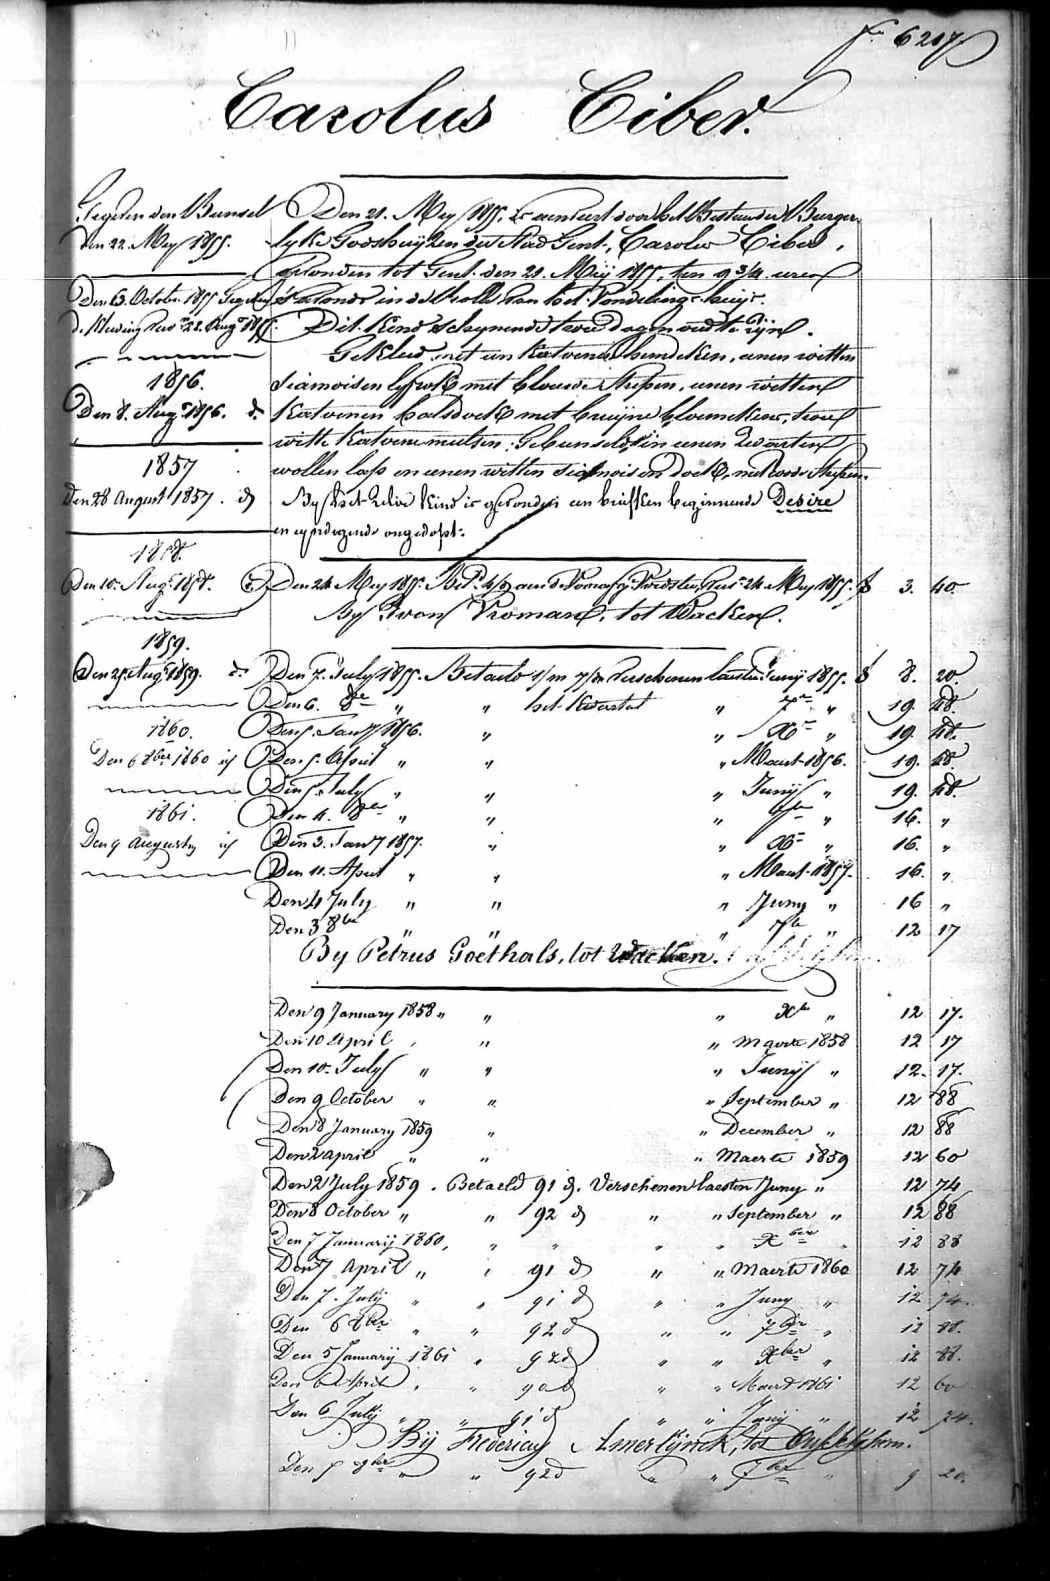 fo 6217
Carolus Ciber.
Gegeven den Bunsel
den 22. Mey 1855.
Den 13. October 1855 Gegeven
de Kleeding 22. Augt 1855.
1856.
Den 8. Augt 1856. d.
1857
Den 28 August 1857. d
1858.
Den 10. Augt 1858.
1859.
Den 25 Augt 1859. d.
1860.
Den 6 8ber 1860 id
1861.
Den 9 Augusty id
Den 21. Mey 1855, is aenveert door het Bestuur der Burger
lyke Godshuyzen der Stad Gent, Carolus Ciber,
gevonden tot Gent den 21. Meij 1855, ten 9 3/4 uren
s'avonds in de Rolle van het Vondelinge-huijs.
Dit Kind schynende twee dagen oud te zijn.
Gekleed met een Katoenen hemdeken, eenen witten
siamoisen lyfrok met blouwe strepen, eenen witten
Katoenen halsdoek met bruyne bloemekens, twee
witte Katoene mutsen; Gebunseld in eenen zwarten
wollen lap en eenen witten siamoisen doek, met roode strepen.
By het zelve Kind is gevonden een briefken beginnende Desire
en eyndigende ongedopt.
Den 24 Mey 1855. Bet. 24 Mey 1855. f 3. 40
By Ivon Vroman, tot Wacken.
Den 7. July 1855. Betaeld 1/m 7/d Verschenen laesten Junij 1855. f 8. 20
Den 6. 8re " " het Kwartal " 7re " 19. 48.
Den 5. Jany 1856. " " Xre " 19. 48.
Den 5. April " " " Maert 1856. 19. 48.
Den 5. July " " " Junij " 19. 48.
Den 4. 8bre " " " 7bre " 16. "
Den 3. Jany 1857. " " Xre " 16. "
Den 11. April " " " Maert 1857. 16. "
Den 4 July " " " Juny " 16 "
Den 3 8bre " " " 7bre " 12 17
By Petrus Goethals, tot Wacken.
Den 9 January 1858 " " " Xbre " 12 17.
Den 10 April " " " Maerte 1858 12 17
Den 10. July " " " Junij " 12. 17.
Den 9 October " " " September " 12 88
Den 8 January 1859 " " December " 12 88
Den 2 april " " " Maerte 1859 12 60
Den 2 July 1859. Betaeld 91 d. Verschenen laesten Juny " 12 74
Den 8 October " " 92 d " " September " 12 88
Den 7 Januarij 1860, " " " " Xber " 12 88
Den 7 April " " 91 d " " Maerte 1860 12 74
Den 7. July " " 91 d " " Juny " 12 74.
Den 6 8ber " " 92 d " " 7ber " 12 88.
Den 5 Januarij 1861 " 92 d " " Xber " 12 88.
Den 6 April " " 90 d " " Maert 1861 12 60
Den 6 July " " 91 d " " Junij " 12 74.
Bij Fredericus Amerlijnck, tot
Den 5 8ber " " 92 d " " 7ber " 9 20.